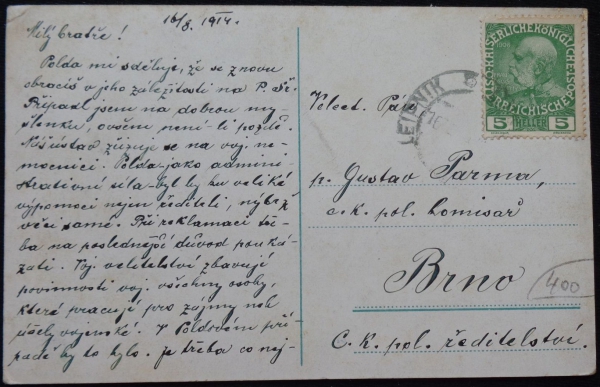 16/8. 1914.
Milý bratře!
Polda mi sděluje, že se znovu
obracíš v jeho záležitosti na P. Ší.
Připadl jsem na dobrou my-
šlenku, ovšem není-li pozdě.
Náš ústav zřizuje se na voj. ne-
mocnici. Polda jako admini-
strativní síla byl by ku veliké
výpomoci nejen řediteli, nýbrž
věci samé. Při reklamaci tře-
ba na poslednější důvod pouká-
zati. Voj. velitelství zbavují
povinnosti voj. všechny osoby,
které pracují pro zájmy neb
účely vojenské. V Poldově pří-
padě by to bylo. Je třeba co nej-
Velect. Pán
p. Gustav Parma,
c. k. pol. komisař
Brno
C. k. pol. ředitelství.
400
KAISERLICHE KÖNIGLICHE
ÖSTERREICHISCHE
5 HELLER 5